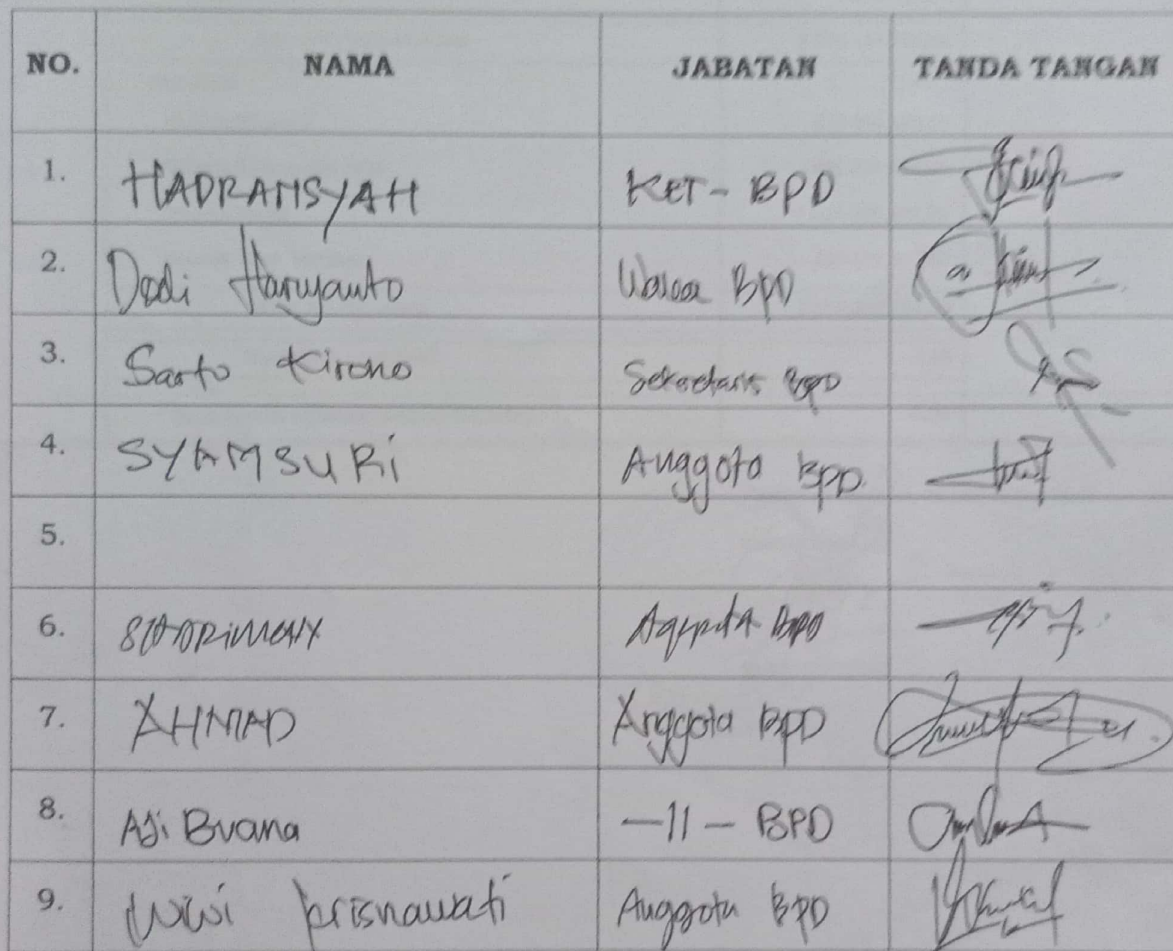 NO. NAMA JABATAN TANDA TANGAN
1. HADRANSYAH KET - BPD
2. Dedi Haryanto Wakil BPD
3. Sarto Kirono Sekretaris BPD
4. SYAMSURi Anggota BPD
5.
6. Anggota BPD
7. AHMAD Anggota BPD
8. Aji Buana -11- BPD
9. Wiwi krisnawati Anggota BPD